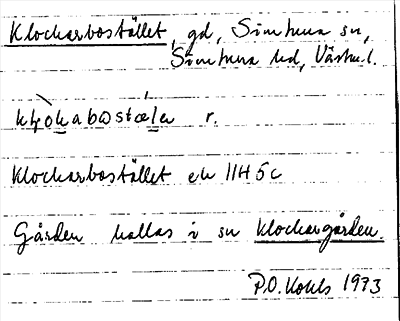 Klockarbostället, gd, Simtuna sn,
Simtuna hd, Västml.
r.
Klockarbostället ek 11H 5c
Gården kallas i sn Klockargården.
P.O. Kohls 1973